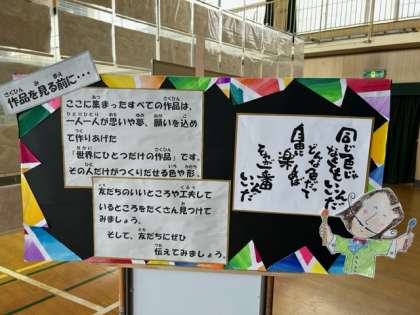 作品を見る前に・・・
ここに集まったすべての作品は、
一人一人が思いや夢、願いを込め
て作りあげた
「世界にひとつだけの作品」です。
その人だけがつくりだせる色や形、
友だちのいいところや工夫して
いるところをたくさん見つけて
みましょう。
そして、友だちにぜひ
伝えてみましょう。
同じ色じゃ
なくてもいいんだ
どんな色だって
自由に楽しく
それが一番
いいんだ